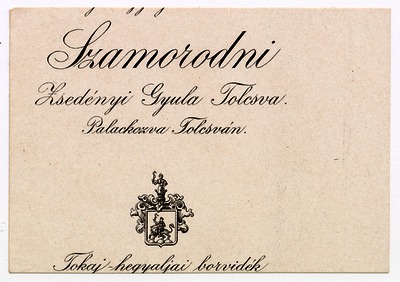 Szamorodni
Zsedényi Gyula Tolcsva.
Palackozva Tolcsván.
Tokaj-hegyaljai borvidék